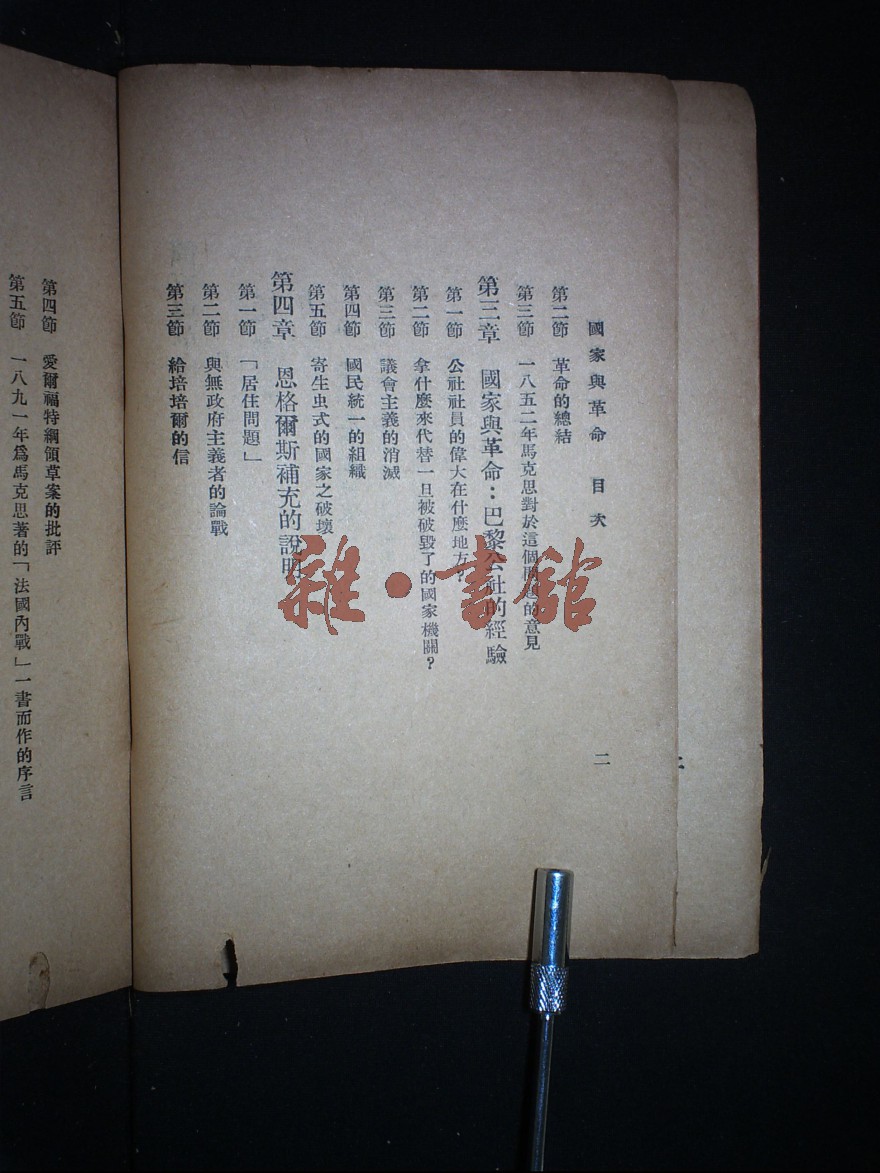 國家與革命 目次
第二節 革命的總結
第三節 一八五二年馬克思對於這個問題的意見
第三章 國家與革命：巴黎公社的經驗
第一節 公社社員的偉大在什麼地方？
第二節 拿什麼來代替一旦被破毀了的國家機關？
第三節 議會主義的消滅
第四節 國民統一的組織
第五節 寄生虫式的國家之破壞
第四章 恩格爾斯補充的說明
第一節 「居住問題」
第二節 與無政府主義者的論戰
第三節 給培培爾的信
二
第四節 愛爾福特綱領草案的批評
第五節 一八九一年爲馬克思著的「法國內戰」一書而作的序言
雜·書館